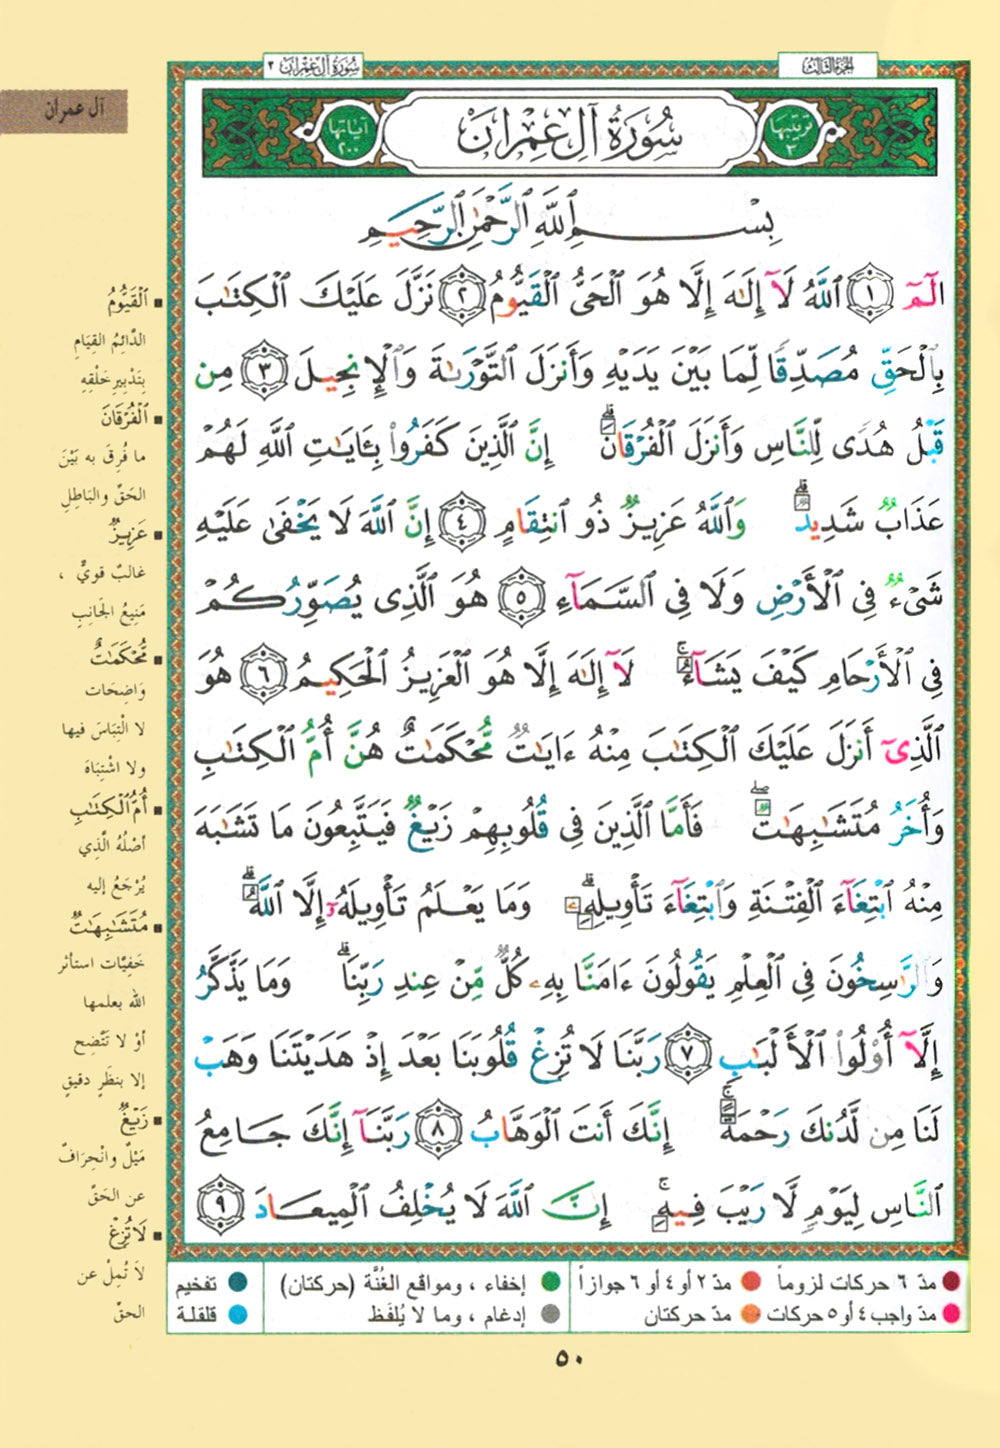 الجزء الثالث
سورة آل عمران ٣
آل عمران
ترتيبها ٣
سُورَةُ آلِ عِمْرَانَ
آياتها ٢٠٠
بِسْمِ ٱللَّهِ ٱلرَّحْمَٰنِ ٱلرَّحِيمِ
الٓمٓ ١ ٱللَّهُ لَآ إِلَٰهَ إِلَّا هُوَ ٱلْحَىُّ ٱلْقَيُّومُ ٢ نَزَّلَ عَلَيْكَ ٱلْكِتَٰبَ
بِٱلْحَقِّ مُصَدِّقًا لِّمَا بَيْنَ يَدَيْهِ وَأَنزَلَ ٱلتَّوْرَىٰةَ وَٱلْإِنجِيلَ ٣ مِن
قَبْلُ هُدًى لِّلنَّاسِ وَأَنزَلَ ٱلْفُرْقَانَ ۗ إِنَّ ٱلَّذِينَ كَفَرُوا۟ بِـَٔايَٰتِ ٱللَّهِ لَهُمْ
عَذَابٌ شَدِيدٌ ۗ وَٱللَّهُ عَزِيزٌ ذُو ٱنتِقَامٍ ٤ إِنَّ ٱللَّهَ لَا يَخْفَىٰ عَلَيْهِ
شَىْءٌ فِى ٱلْأَرْضِ وَلَا فِى ٱلسَّمَآءِ ٥ هُوَ ٱلَّذِى يُصَوِّرُكُمْ
فِى ٱلْأَرْحَامِ كَيْفَ يَشَآءُ ۚ لَآ إِلَٰهَ إِلَّا هُوَ ٱلْعَزِيزُ ٱلْحَكِيمُ ٦ هُوَ
ٱلَّذِىٓ أَنزَلَ عَلَيْكَ ٱلْكِتَٰبَ مِنْهُ ءَايَٰتٌ مُّحْكَمَٰتٌ هُنَّ أُمُّ ٱلْكِتَٰبِ
وَأُخَرُ مُتَشَٰبِهَٰتٌ ۖ فَأَمَّا ٱلَّذِينَ فِى قُلُوبِهِمْ زَيْغٌ فَيَتَّبِعُونَ مَا تَشَٰبَهَ
مِنْهُ ٱبْتِغَآءَ ٱلْفِتْنَةِ وَٱبْتِغَآءَ تَأْوِيلِهِۦ ۗ وَمَا يَعْلَمُ تَأْوِيلَهُۥٓ إِلَّا ٱللَّهُ ۗ
وَٱلرَّٰسِخُونَ فِى ٱلْعِلْمِ يَقُولُونَ ءَامَنَّا بِهِۦ كُلٌّ مِّنْ عِندِ رَبِّنَا ۗ وَمَا يَذَّكَّرُ
إِلَّآ أُو۟لُوا۟ ٱلْأَلْبَٰبِ ٧ رَبَّنَا لَا تُزِغْ قُلُوبَنَا بَعْدَ إِذْ هَدَيْتَنَا وَهَبْ
لَنَا مِن لَّدُنكَ رَحْمَةً ۚ إِنَّكَ أَنتَ ٱلْوَهَّابُ ٨ رَبَّنَآ إِنَّكَ جَامِعُ
ٱلنَّاسِ لِيَوْمٍ لَّا رَيْبَ فِيهِ ۚ إِنَّ ٱللَّهَ لَا يُخْلِفُ ٱلْمِيعَادَ ٩
ٱلْقَيُّومُ
الدَّائِمُ القِيَامِ
بِتَدْبِيرِ خَلْقِهِ
ٱلْفُرْقَانَ
ما فُرِقَ به بَيْنَ
الحَقِّ والبَاطِلِ
عَزِيزٌ
غالبٌ قويٌّ ،
مَنِيعُ الجَانِبِ
مُّحْكَمَٰتٌ
وَاضِحَات
لا الْتِبَاسَ فيها
ولا اشْتِبَاهَ
أُمُّ ٱلْكِتَٰبِ
أصْلُهُ الَّذِي
يُرْجَعُ إليه
مُتَشَٰبِهَٰتٌ
خَفِيَّات استأثر
الله بعلمها
أوْ لا تَتَّضِح
إلا بنظَرٍ دقيقٍ
زَيْغٌ
مَيْلٌ وانْحِرَافٌ
عن الحَقّ
لَا تُزِغْ
لاَ تُمِلْ عن
الحقّ
مدّ ٦ حركات لزوماً
مدّ ٢ أو ٤ أو ٦ جوازاً
إخفاء ، ومواقع الغُنَّة (حركتان)
تفخيم
مدّ واجب ٤ أو ٥ حركات
مدّ حركتان
إدغام ، وما لا يُلفَظ
قلقلة
٥٠